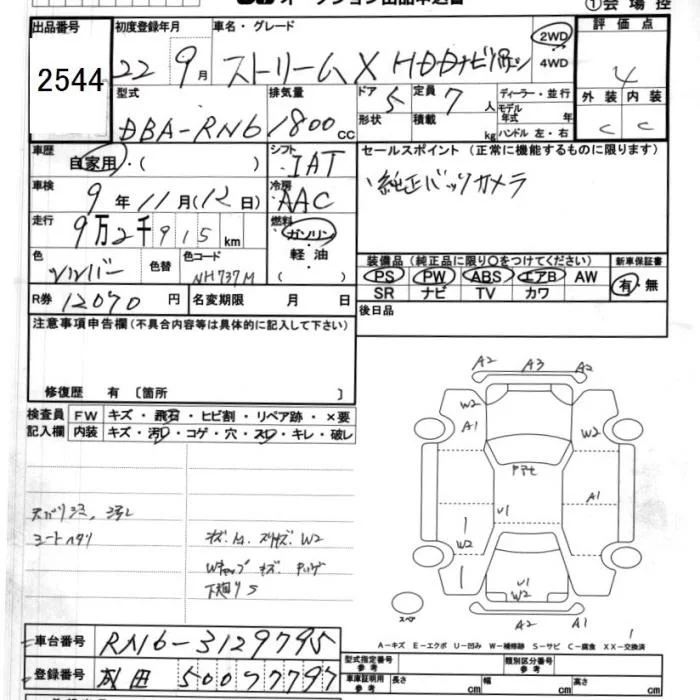 ①会場控
出品番号 初度登録年月 車名・グレード 評価点
2544 22 9月 ストリーム X HDDナビ 2WD 4WD 4
型式 排気量 ドア 5 定員 7 人 ディーラー・並行 外装 内装
DBA-RN6 1800 cc 形状 積載 kg モデル年式 年 ハンドル 左・右 C C
車歴 自家用・( ) シフト IAT セールスポイント (正常に機能するものに限ります)
車検 9年 11月(12日) 冷房 AAC 純正バックカメラ
走行 9万2千915km 燃料 ガソリン 軽油
色 シルバー 色替 色コード NH737M 装備品 (純正品に限り○をつけてください) 新車保証書
PS PW ABS エアB AW 有・無
SR ナビ TV カワ
R券 12070円 名変期限 月 日 後日品
注意事項申告欄(不具合内容等は具体的に記入して下さい)
修復歴 有 〔箇所 〕
検査員 FW キズ・飛石・ヒビ割・リペア跡・×要
記入欄 内装 キズ・汚レ・コゲ・穴・スレ・キレ・破レ
A2 A3 A2
W2 A1 W2
U1 A1
W2
U1 W2
A2 A1
シートヘタリ
W2
スペア
A-キズ E-エクボ U-凹み W-補修跡 S-サビ C-腐食 XX-交換済
車台番号 RN6-3129795 型式指定番号 参考 類別区分番号 参考
登録番号 成田 500 7797 車庫証明用 参考 長さ cm 幅 cm 高さ cm